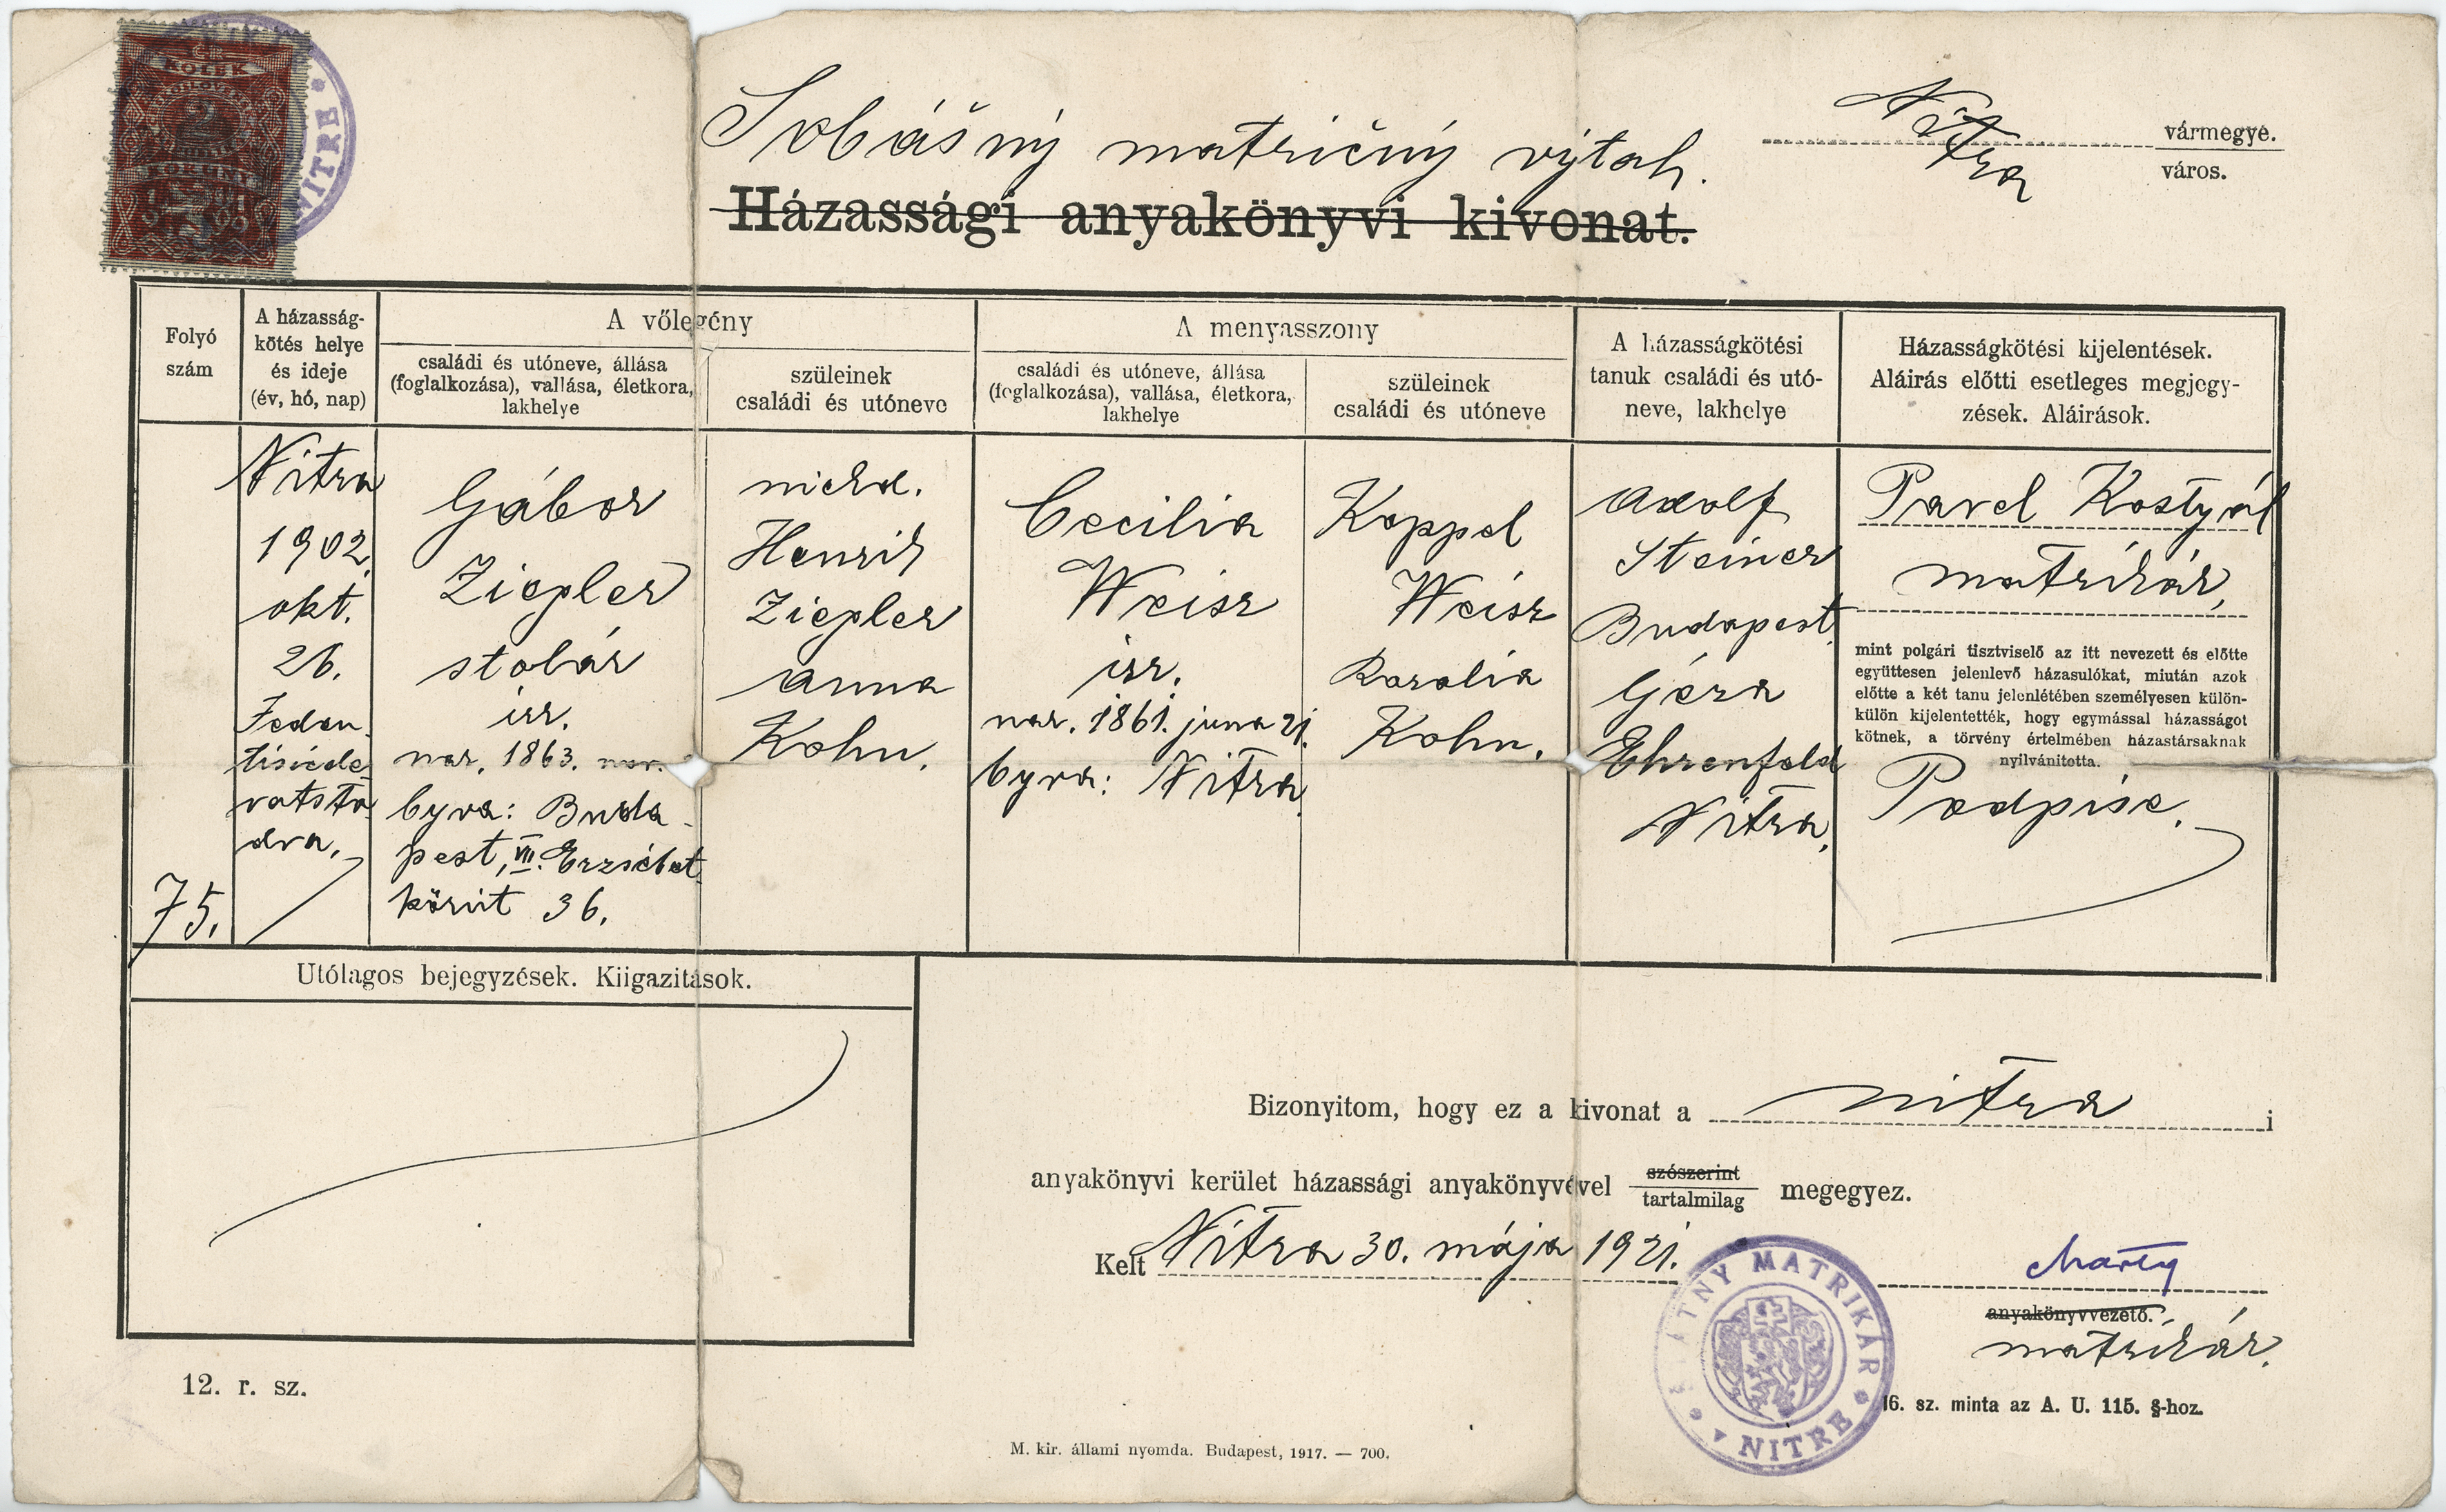 KOLEK
2
KORUNY
NITRE
Sobášny matričný výtah.
Nitra
vármegye.
város.
Házassági anyakönyvi kivonat.
Folyó
szám
A házasság-
kötés helye
és ideje
(év, hó, nap)
A vőlegény
családi és utóneve, állása
(foglalkozása), vallása, életkora,
lakhelye
szüleinek
családi és utóneve
A menyasszony
családi és utóneve, állása
(foglalkozása), vallása, életkora,
lakhelye
szüleinek
családi és utóneve
A házasságkötési
tanuk családi és utó-
neve, lakhelye
Házasságkötési kijelentések.
Aláirás előtti esetleges megjegy-
zések. Aláirások.
75.
Nitra
1902.
okt.
26.
Jeden-
tisícde-
vatsto-
dva.
Gábor
Ziegler
stolár
izr.
nar. 1863. nov.
býva: Buda-
pest, VII. Erzsébet
körút 36.
nieкd.
Henrik
Ziegler
Anna
Kohn.
Cecilia
Weisz
izr.
nar. 1861. juna 21.
býva: Nitra
Koppel
Weisz
Rozalia
Kohn.
Adolf
Steiner
Budapest
Géza
Ehrenfeld
Nitra.
Pavel Kostyál
matrikár,
mint polgári tisztviselő az itt nevezett és előtte
együttesen jelenlevő házasulókat, miután azok
előtte a két tanu jelenlétében személyesen külön-
külön kijelentették, hogy egymással házasságot
kötnek, a törvény értelmében házastársaknak
nyilvánitotta.
Podpise.
Utólagos bejegyzések. Kiigazitások.
Bizonyitom, hogy ez a kivonat a Nitra i
anyakönyvi kerület házassági anyakönyvével szószerint
tartalmilag megegyez.
Kelt Nitra 30. mája 1921.
ŠTÁTNY MATRIKÁR
NITRE
anyakönyvvezető.
matrikár.
12. r. sz.
16. sz. minta az A. U. 115. §-hoz.
M. kir. állami nyomda. Budapest, 1917. — 700.